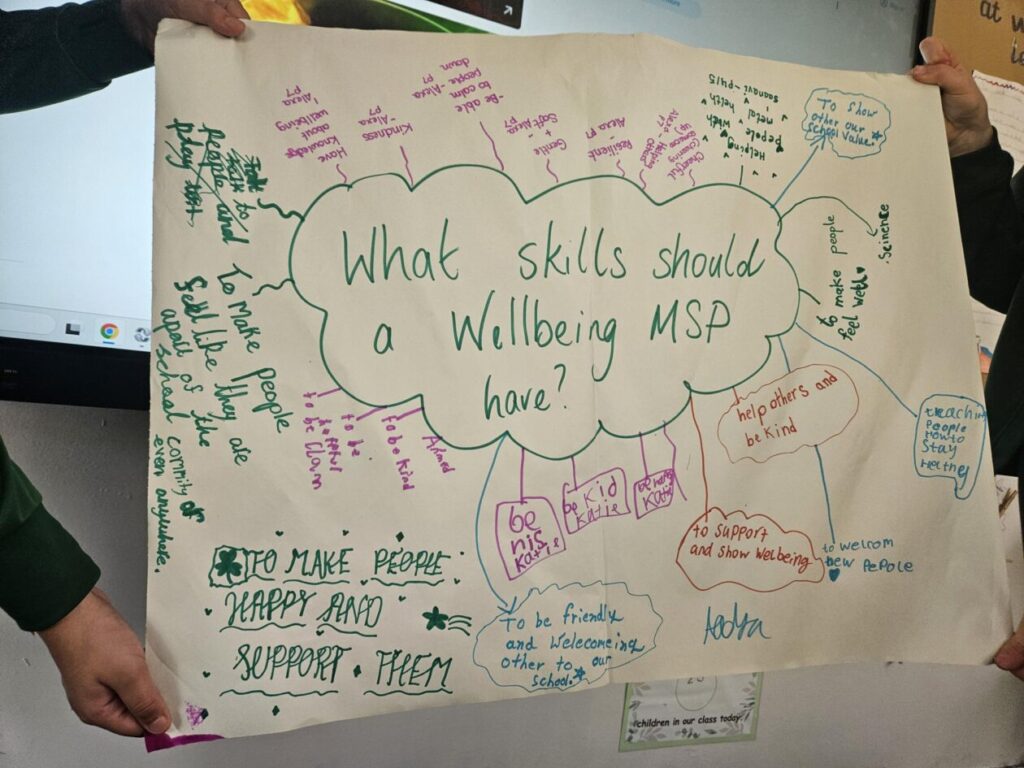 What skills should
a Wellbeing MSP
have?
Have
Knowledge
about
wellbeing
'Alexa
P7
Kindness
-Alexa
P7
-Be able
to calm
people -Alexa
down P7
Gentle
+
Soft Alexa
P7
Resilient
Alexa P7
Cheerful
Helping
Alexa P7
Helping
pepole with
metal helth
saanavi-P4/5
To show
other our
school value.
Scinence
to make people
feel well
teaching
People
How to
Stay
Healthey
help others and
be kind
to welcom
new pepole
to support
and show welbeing
be
nis
Katie
be kid
Katie
Katie
to be friendly
and welecomeing
other to our
school.
Ahmed
to be kind
to be
to be clam
to
people and
play
to make people
feel like they are
apall of the
school commity or
even anywhere.
TO MAKE PEOPLE
HAPPY AND
SUPPORT THEM
children in our class today.
at w